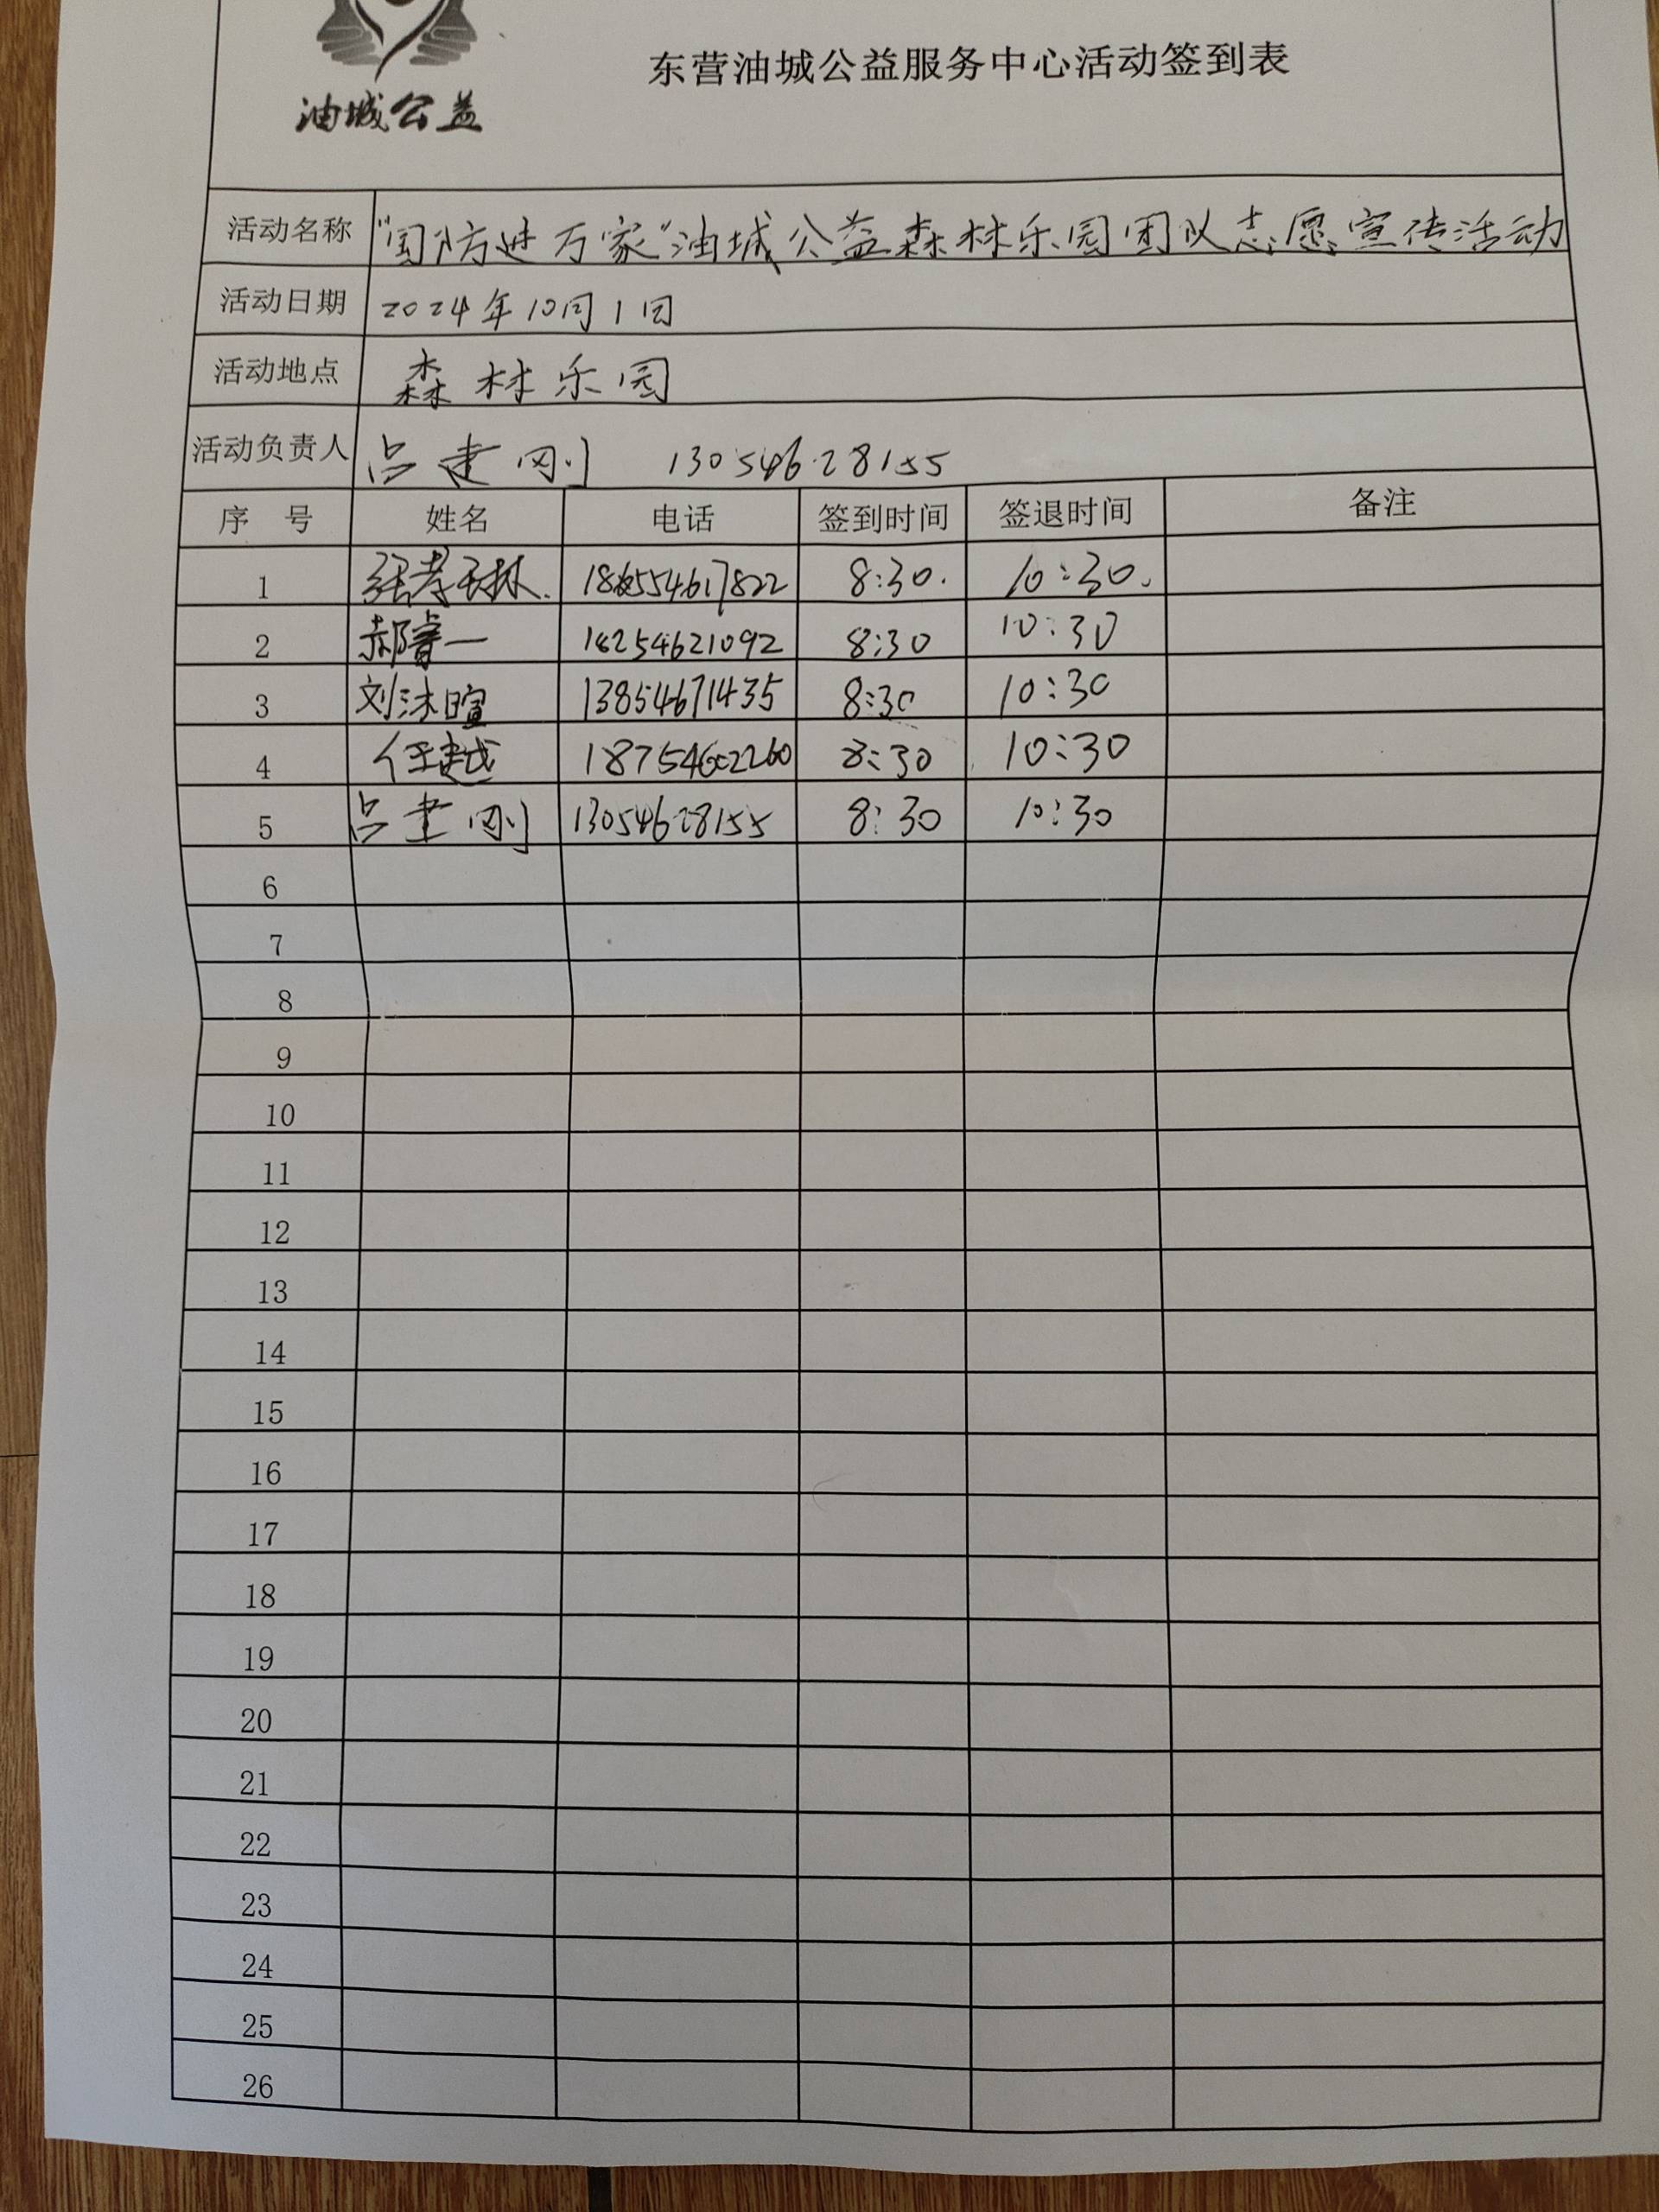 东营油城公益服务中心活动签到表
油城公益
活动名称 "国防进万家"油城公益森林乐园团队志愿宣传活动
活动日期 2024年10月1日
活动地点 森林乐园
活动负责人 吕建刚 13054628155
序 号 姓名 电话 签到时间 签退时间 备注
1 8:30. 10:30.
2 郝睿一 18254621092 8:30 10:30
3 刘沐暄 13854671435 8:30 10:30
4 任越 18754602260 8:30 10:30
5 吕建刚 13054628155 8:30 10:30
6
7
8
9
10
11
12
13
14
15
16
17
18
19
20
21
22
23
24
25
26